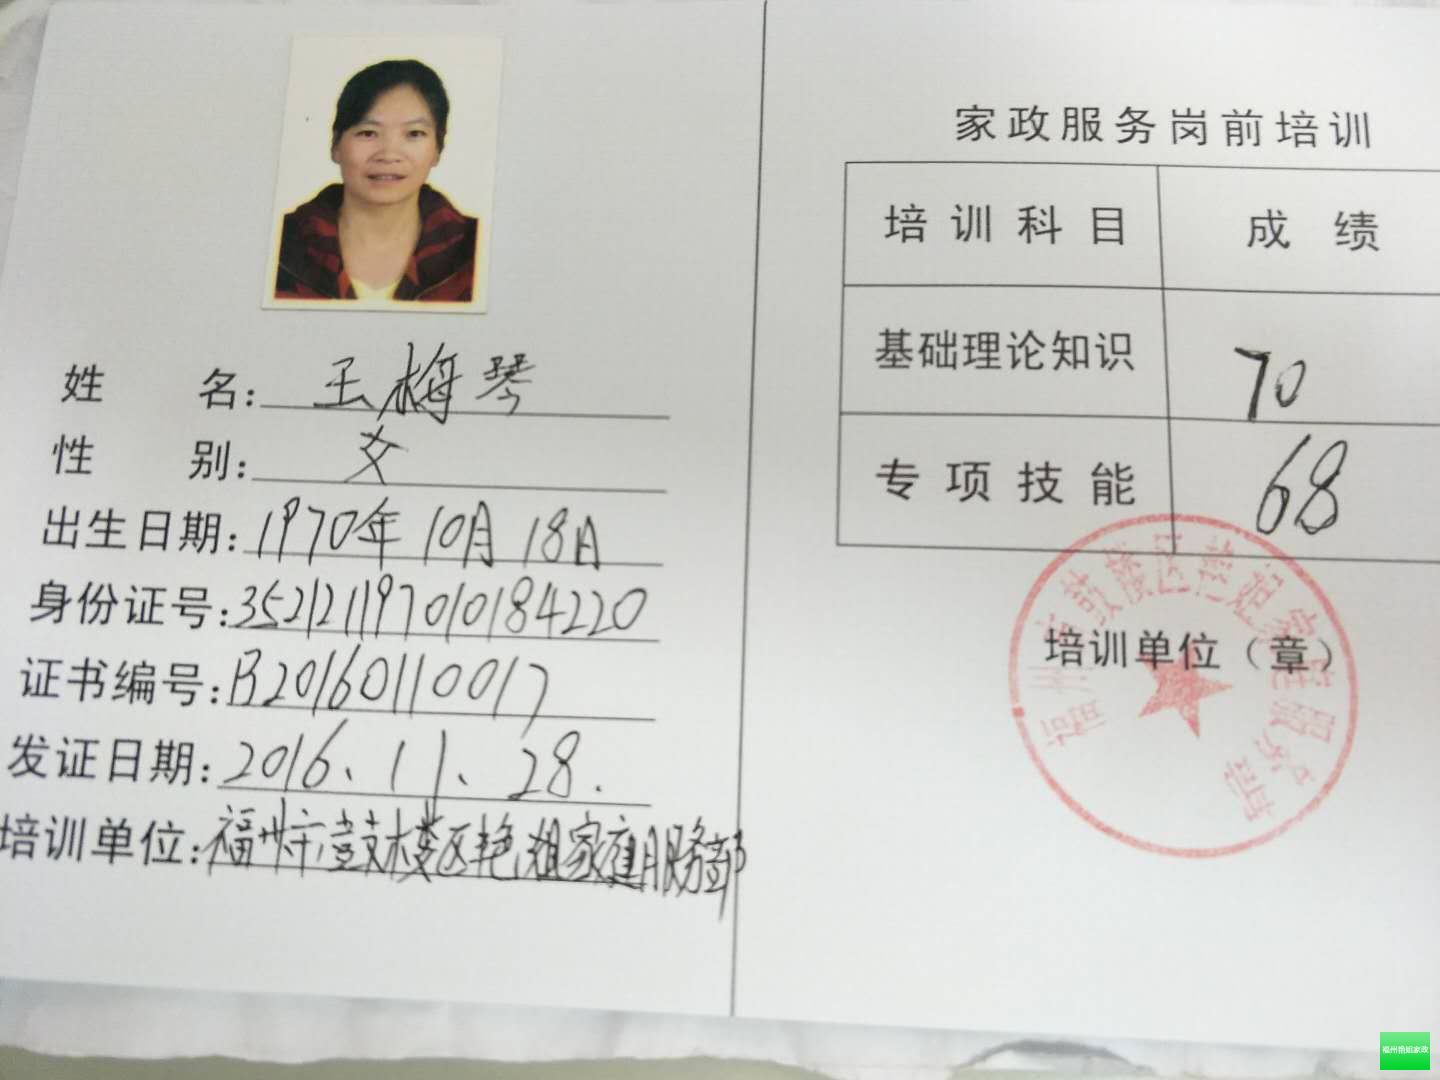 姓 名: 王梅琴
性 别: 女
出生日期: 1970年10月18日
身份证号: 352121197010184220
证书编号: B20160110017
发证日期: 2016、11、28.
培训单位: 福州市鼓楼区艳姐家庭服务部
家政服务岗前培训
培训科目 成绩
基础理论知识 70
专项技能 68
培训单位（章）
福州市鼓楼区艳姐家庭服务部
福州艳姐家政